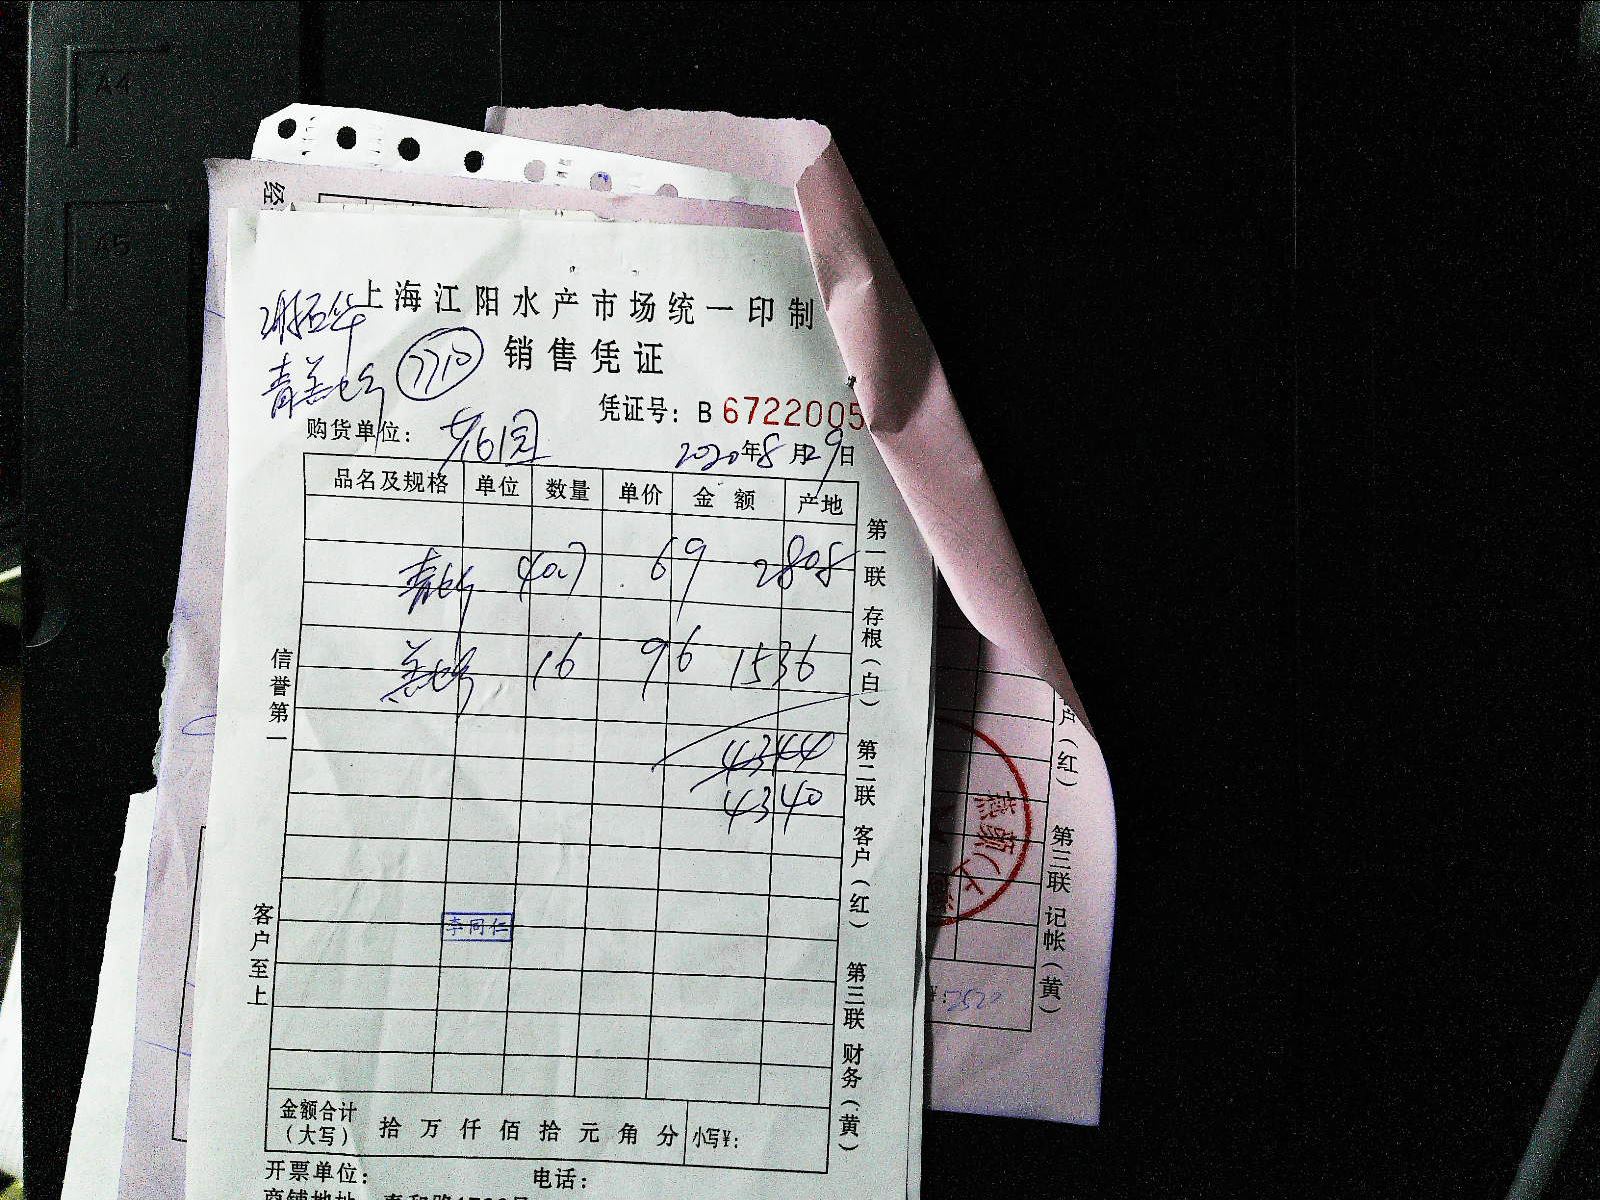 A4
A5
经
上海江阳水产市场统一印制
销售凭证
7710
凭证号：B 6722005
购货单位：
2020年8月29日
品名及规格 单位 数量 单价 金额 产地
40.7 69 2808
16 96 1536
4344
4340
李同仁
金额合计（大写） 拾 万 仟 佰 拾 元 角 分 小写¥：
开票单位： 电话：
信誉第一
客户至上
第一联 存根（白） 第二联 客户（红） 第三联 财务（黄）
户（红） 第三联 记帐（黄）
¥：2520